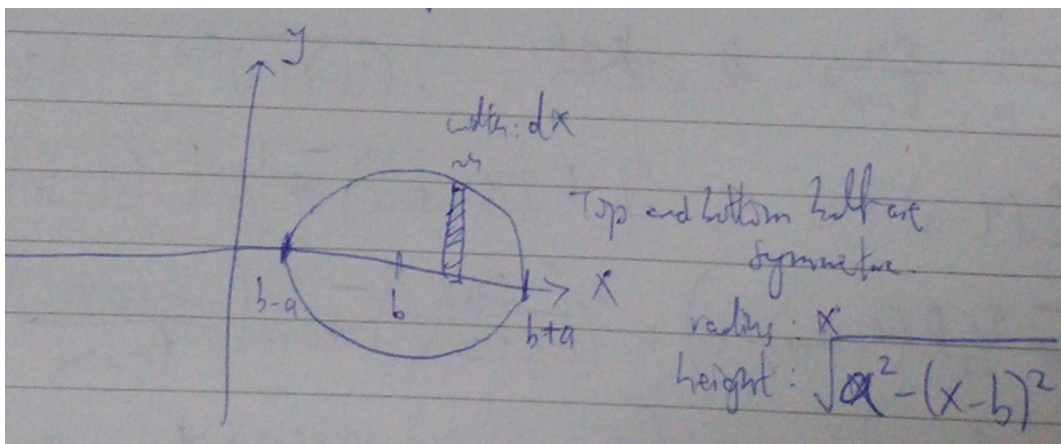 y
width: dx
Top and bottom half are
symmetric.
b-a
b
b+a
x
radius: x
height: √a²-(x-b)²